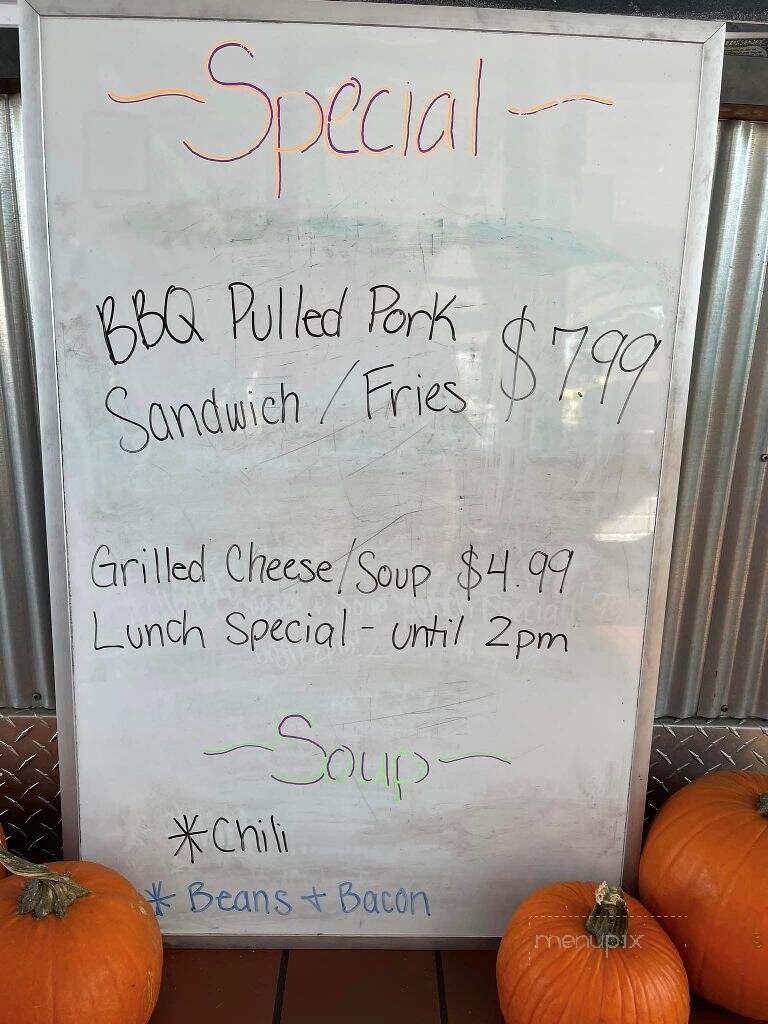 ~Special~
BBQ Pulled Pork
Sandwich / Fries $7.99
Grilled Cheese/Soup $4.99
Lunch Special - until 2pm
~Soup~
* Chili
* Beans + Bacon
menupix